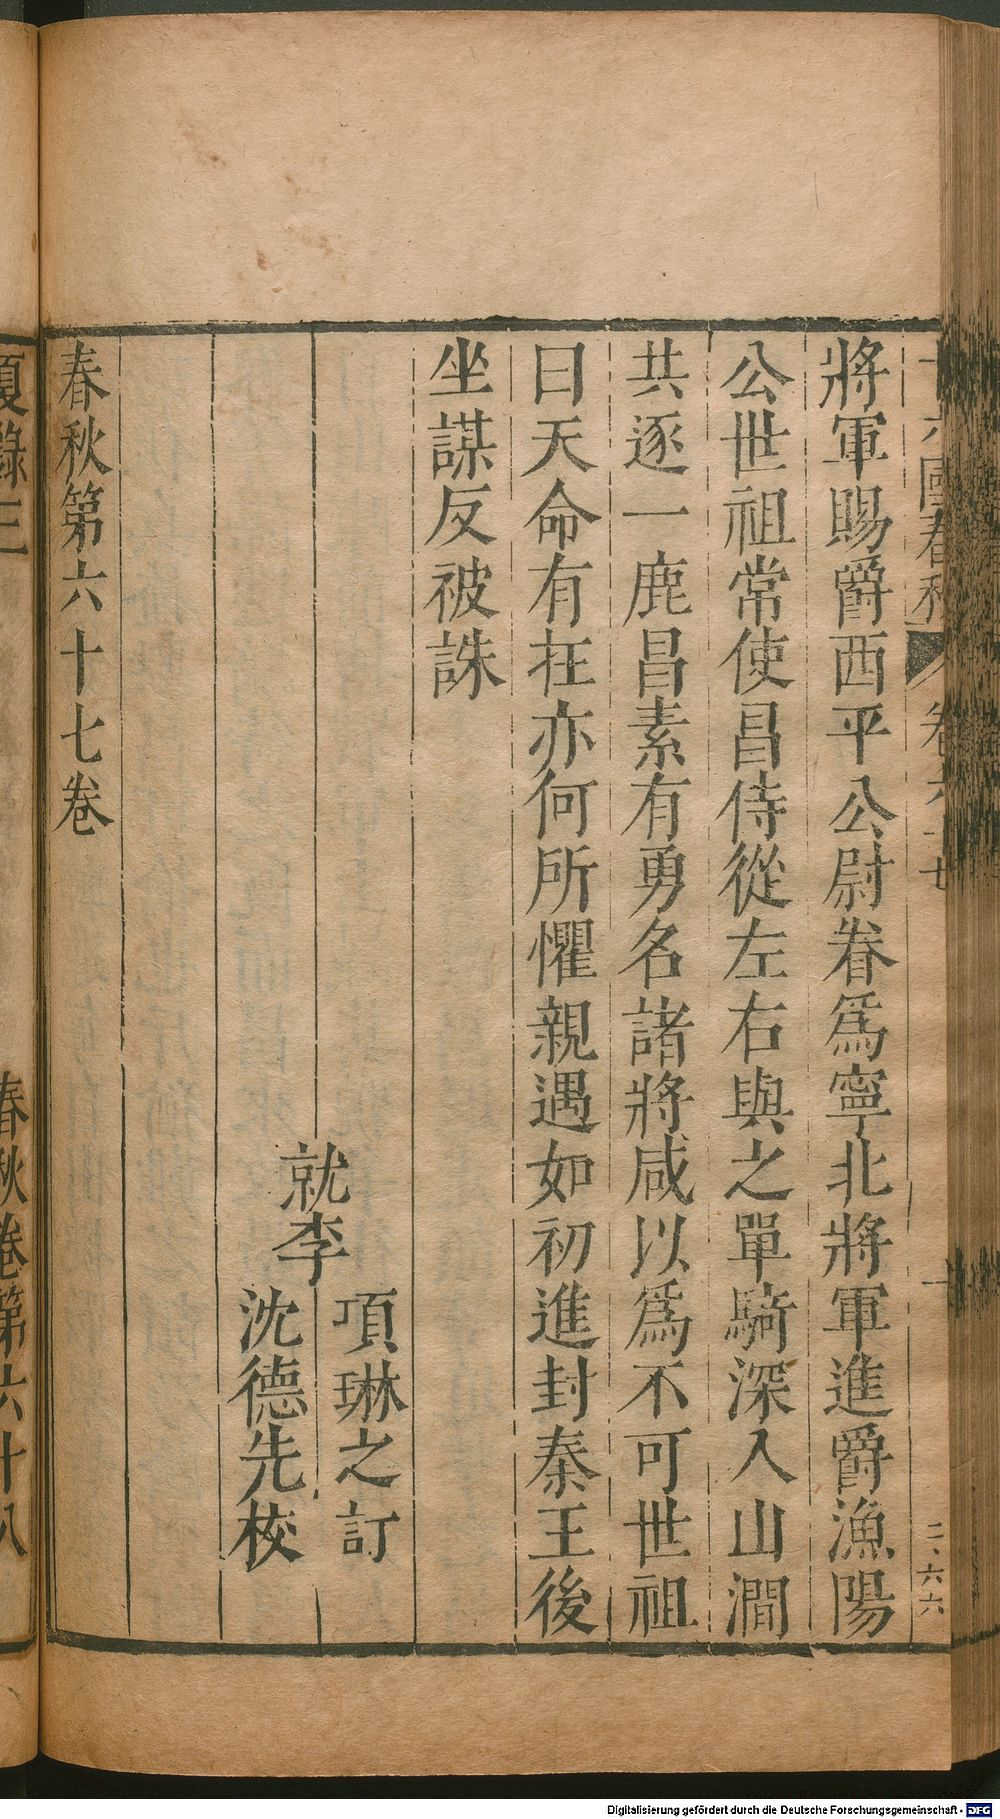 十六國春秋 卷六十七 十 三、六六
將軍賜爵西平公尉眷爲寧北將軍進爵漁陽
公世祖常使昌侍從左右與之單騎深入山澗
共逐一鹿昌素有勇名諸將咸以爲不可世祖
曰天命有在亦何所懼親遇如初進封秦王後
坐謀反被誅
就李
項琳之訂
沈德先校
春秋第六十七卷
夏錄三 春秋卷第六十八
Digitalisierung gefördert durch die Deutsche Forschungsgemeinschaft - DFG